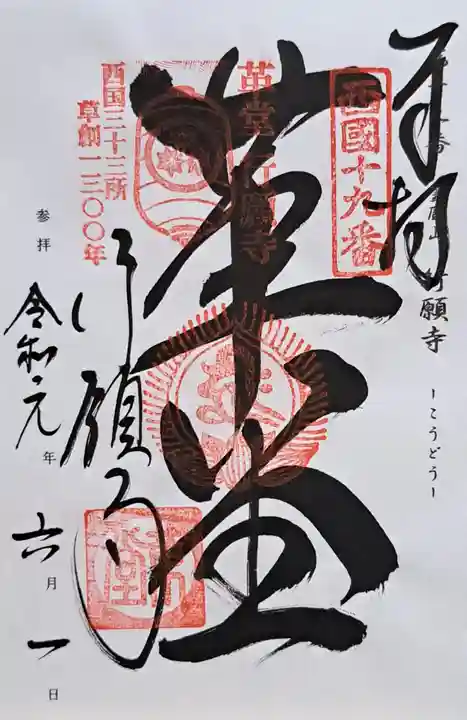 奉拝
行願寺
ーこうどうー
西國十九番
革堂
革堂行願寺
西国三十三所
草創一三〇〇年
行願寺
参拝
令和元年
六月
一日